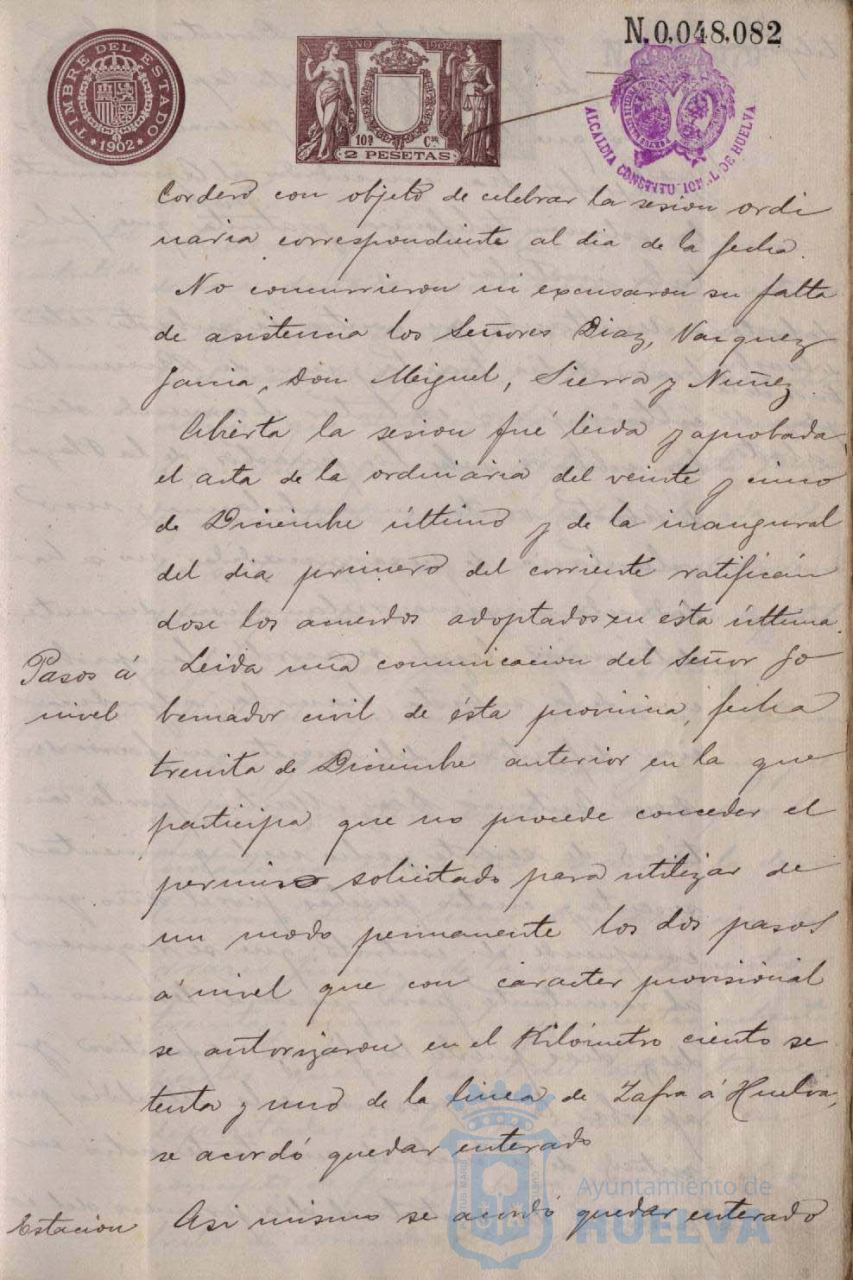 N.0,048,082
TIMBRE DEL ESTADO
*1902*
AÑO 1902
10ª Cse
2 PESETAS
ALCALDIA CONSTITUCIONAL DE HUELVA
Cordero con objeto de celebrar la sesion ordi
naria correspondiente al dia de la fecha.
No concurrieron ni excusaron su falta
de asistencia los Señores Diaz, Vazquez
Garcia, Don Miguel, Sierra y Nuñez.
Abierta la sesion fué leida y aprobada
el acta de la ordinaria del veinte y cinco
de Diciembre último y de la inaugural
del dia primero del corriente ratificán
dose los acuerdos adoptados en ésta última.
Pasos á
nivel
Leida una comunicacion del Señor Go
bernador civil de ésta provincia, fecha
treinta de Diciembre anterior en la que
participa que no procede conceder el
permiso solicitado para utilizar de
un modo permanente los dos pasos
á nivel que con caracter provisional
se autorizaron en el Kilómetro ciento se
tenta y uno de la linea de Zafra á Huelva,
se acordó quedar enterado
Estacion
Asi mismo se acordó quedar enterado
Ayuntamiento de
HUELVA